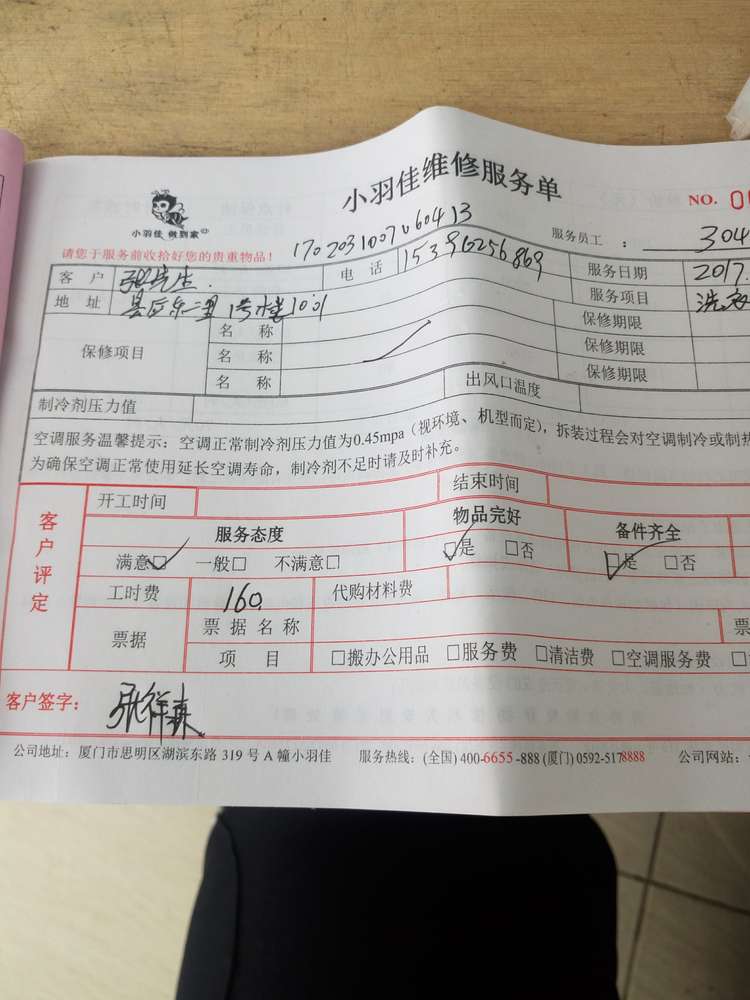 小羽佳维修服务单
NO. 0
小羽佳 做到家
1702031007060413
服务员工 : 304
请您于服务前收拾好您的贵重物品!
客 户 张先生. 电 话 15396256869 服务日期 2017.
地 址 1号楼1001 服务项目 洗衣
保修项目 名 称 保修期限
名 称 保修期限
名 称 保修期限
制冷剂压力值 出风口温度
空调服务温馨提示: 空调正常制冷剂压力值为0.45mpa (视环境、机型而定), 拆装过程会对空调制冷或制热
为确保空调正常使用延长空调寿命, 制冷剂不足时请及时补充。
客户评定
开工时间 结束时间
服务态度 物品完好 备件齐全
满意☑ 一般□ 不满意□ ☑是 □否 ☑是 □否
工时费 160 代购材料费
票据 票 据 名 称 票
项 目 □搬办公用品 □服务费 □清洁费 □空调服务费 □
客户签字: 张祥森
公司地址: 厦门市思明区湖滨东路 319 号 A 幢小羽佳 服务热线: (全国) 400-6655-888 (厦门) 0592-5178888 公司网站: